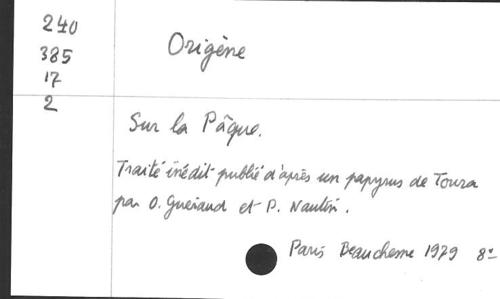 240
385
17
2
Origène
Sur la Pâque.
Traité inédit publié d'après un papyrus de Toura
par O. Guéraud et P. Nautin.
Paris Beauchesne 1979 8°